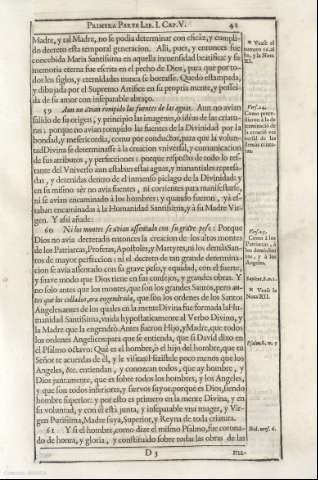 PRIMERA PARTE LIB. I. CAP. V. 42
Madre, y tal Madre, no se podia determinar con eficàz, y cumpli-
do decreto esta temporal generacion. Alli, pues, y entonces fue
concebida Maria Santissima en aquella inmensidad beatifica: y su
memoria eterna fue escrita en el pecho de Dios, para que por to-
dos los siglos, y eternidades nunca se borrasse. Quedó estampada,
y dibuxada por el Supremo Artifice en su propria mente, y posseì-
da de su amor con inseparable abraço.
59 Aun no avian rompido las fuentes de las aguas. Aun no avian
salido de su origen, y principio las imagenes, ò ideas de las criatu-
ras: porque no avian rompido las fuentes de la Divinidad por la
bondad, y misericordia, como por conductos, para que la volun-
tad Divina se determinasse à la creacion vniversal, y comunicacion
de sus atributos, y perfecciones: porque respeto de todo lo res-
tante del Vniverso aun estaban estas aguas, y manantiales represa-
das, y detenidas dentro de el inmenso pielago de la Divinidad: y
en su mismo sèr no avia fuentes, ni corrientes para manifestarse,
ni se avian encaminado à los hombres: y quando fueron, yà es-
taban encaminadas à la Humanidad Santissima, y à su Madre Vir-
gen. Y assi añade:
60 Ni los montes se avian assentado con su grave peso: Porque
Dios no avia decretado entonces la creacion de los altos montes
de los Patriarcas, Profetas, Apostoles, y Martyres, ni los demàs San-
tos de mayor perfeccion: ni el decreto de tan grande determina-
cion se avia assentado con su grave peso, y equidad, con el fuerte,
y suave modo que Dios tiene en sus consejos, y grandes obras. Y
no solo antes que los montes, que son los grandes Santos, pero an-
tes que los collados, era engendrada, que son los ordenes de los Santos
Angeles antes de los quales en la mente Divina fue formada la Hu-
manidad Santissima, vnida hypostaticamente al Verbo Divino, y
la Madre que la engendrò. Antes fueron Hijo, y Madre, que todos
los ordenes Angelicos: para que se entienda, que si David dixo en
el Psalmo octavo: Què es el hombre, ò el hijo del hombre, que tu
Señor te acuerdas de èl, y le visitas? Hizistele poco menos que los
Angeles, &c. entiendan, y conozcan todos, que ay hombre, y
Dios juntamente, que es sobre todos los hombres, y los Angeles,
y que son todos inferiores, y siervos suyos: porque es Dios, siendo
hombre superior: y por esto es primero en la mente Divina, y en
su voluntad, y con èl està junta, è inseparable vna muger, y Vir-
gen Purissima, Madre suya, Superior, y Reyna de toda criatura.
61 Y si el hombre, como dize el mismo Psalmo, fue corona-
do de honra, y gloria, y constituìdo sobre todas las obras de las
D 3